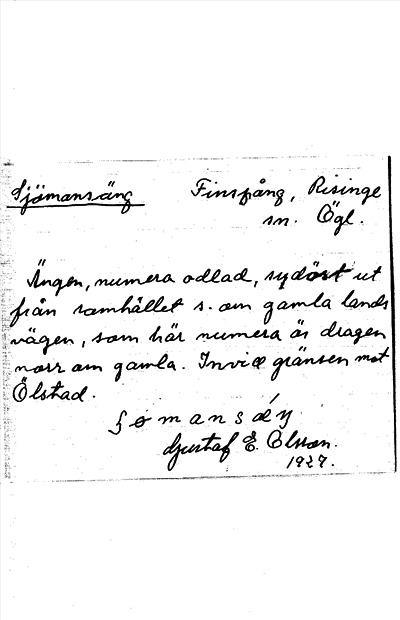 Sjömansäng Finspång, Risinge
sn. Ögl.
Ängen, numera odlad, sydöst ut
från samhället s. om gamla lands
vägen, som här numera är dragen
norr om gamla. Invid gränsen mot
Ölstad.
Gustaf E. Olsson.
1927.